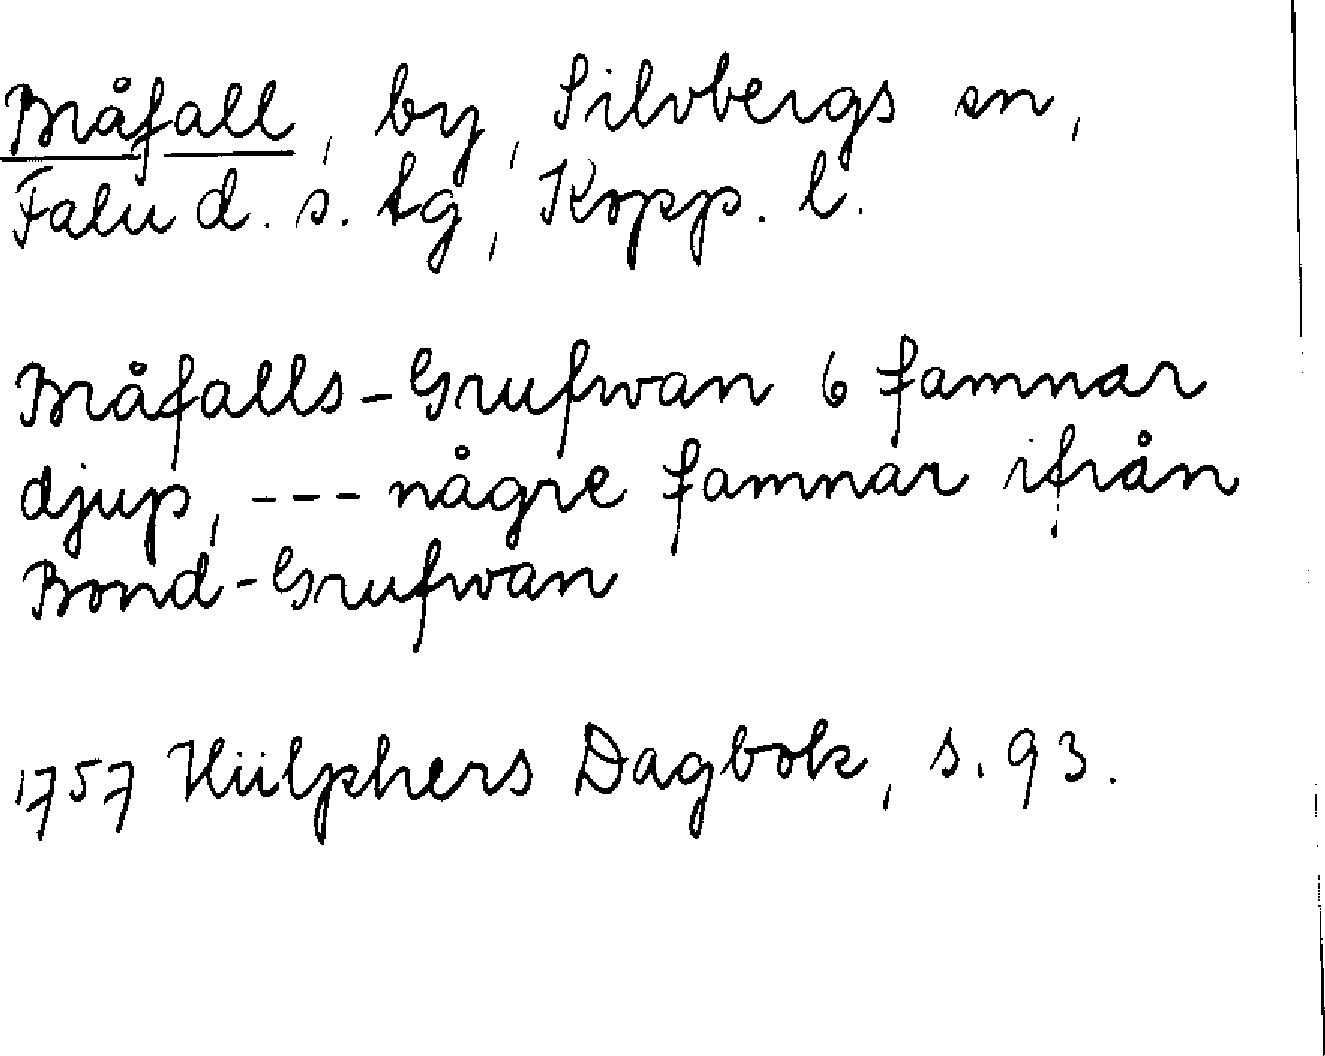 Bråfall, by, Silvbergs sn,
Falu d. s. tg, Kopp. l.
Bråfalls-Grufwan 6 famnar
djup, --- någre famnar ifrån
Bond-Grufwan
1757 Hülphers Dagbok, s. 93.